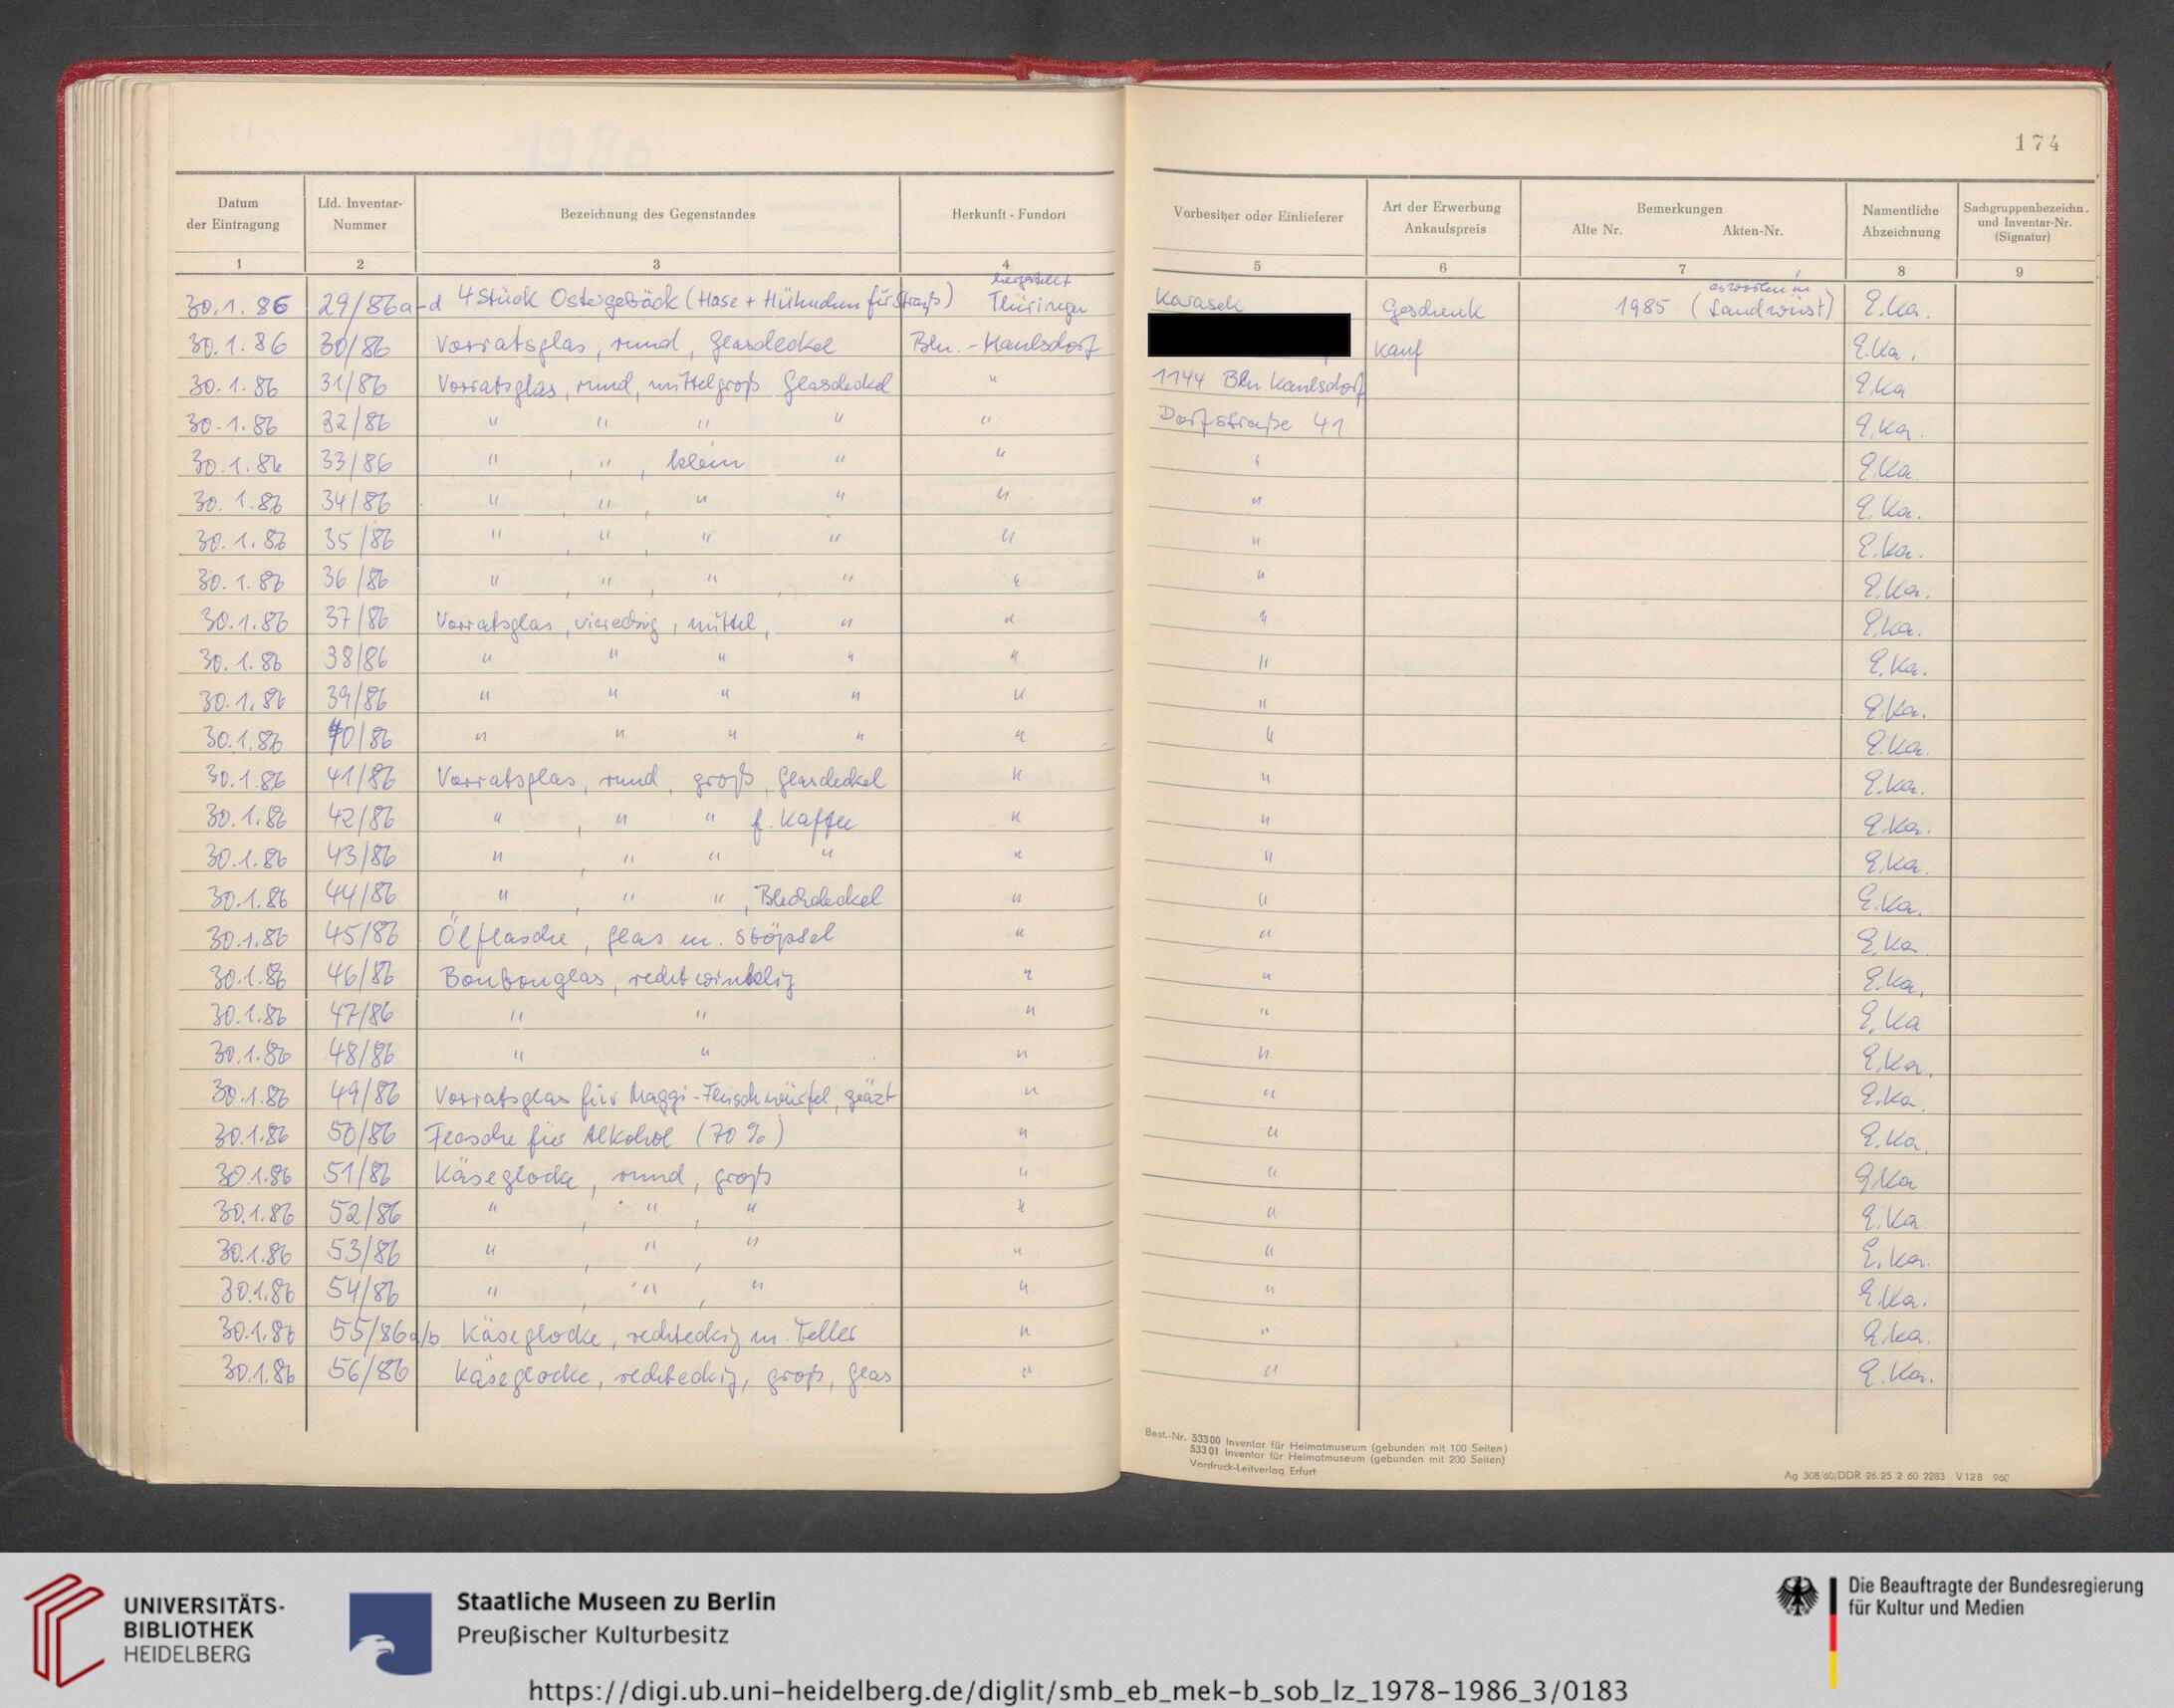 174
Datum der Eintragung
Lfd. Inventar-Nummer
Bezeichnung des Gegenstandes
Herkunft - Fundort
Vorbesitzer oder Einlieferer
Art der Erwerbung Ankaufspreis
Bemerkungen
Alte Nr. Akten-Nr.
Namentliche Abzeichnung
Sachgruppenbezeichn. und Inventar-Nr. (Signatur)
1 2 3 4 5 6 7 8 9
hergestellt erworben in
30.1.86 29/86a-d 4 Stück Ostergebäck (Hase + Hühnchen für Strauß) Thüringen Karasek Geschenk 1985 (Landwüst) E.Ka.
30.1.86 30/86 Vorratsglas, rund, Glasdeckel Bln. - Kaulsdorf Kauf E.Ka.
30.1.86 31/86 Vorratsglas, rund, mittelgroß Glasdeckel " 1144 Bln Kaulsdorf E.Ka
30.1.86 32/86 " " " " " Dorfstraße 41 E.Ka.
30.1.86 33/86 " , " , klein " " " E.Ka.
30.1.86 34/86 " , " , " " " " E.Ka.
30.1.86 35/86 " , " , " " " " E.Ka.
30.1.86 36/86 " , " , " , " " " E.Ka.
30.1.86 37/86 Vorratsglas, viereckig, mittel, " " " E.Ka.
30.1.86 38/86 " " " " " " E.Ka.
30.1.86 39/86 " " " " " " E.Ka.
30.1.86 40/86 " " " " " " E.Ka.
30.1.86 41/86 Vorratsglas, rund, groß, Glasdeckel " " E.Ka.
30.1.86 42/86 " , " " f. Kaffee " " E.Ka.
30.1.86 43/86 " , " " " " " E.Ka.
30.1.86 44/86 " , " " , Blechdeckel " " E.Ka.
30.1.86 45/86 Ölflasche, Glas m. Stöpsel " " E.Ka
30.1.86 46/86 Bonbonglas, rechtwinklig " " E.Ka.
30.1.86 47/86 " " " " E.Ka
30.1.86 48/86 " " " " E.Ka.
30.1.86 49/86 Vorratsglas für Maggi-Fleischwürfel, geäzt " " E.Ka.
30.1.86 50/86 Flasche für Alkohol (70 %) " " E.Ka.
30.1.86 51/86 Käseglocke, rund, groß " " E.Ka
30.1.86 52/86 " , " , " " " E.Ka.
30.1.86 53/86 " , " , " " " E.Ka.
30.1.86 54/86 " , " , " " " E.Ka.
30.1.86 55/86a/b Käseglocke, rechteckig m. Teller " " E.Ka.
30.1.86 56/86 Käseglocke, rechteckig, groß, Glas " " E.Ka.
Best.-Nr. 53300 Inventar für Heimatmuseum (gebunden mit 100 Seiten)
53301 Inventar für Heimatmuseum (gebunden mit 200 Seiten)
Vordruck-Leitverlag Erfurt
Ag 308/60/DDR 26 25 2 60 2283 V 128 960
UNIVERSITÄTS-
BIBLIOTHEK
HEIDELBERG
Staatliche Museen zu Berlin
Preußischer Kulturbesitz
Die Beauftragte der Bundesregierung
für Kultur und Medien
https://digi.ub.uni-heidelberg.de/diglit/smb_eb_mek-b_sob_lz_1978-1986_3/0183